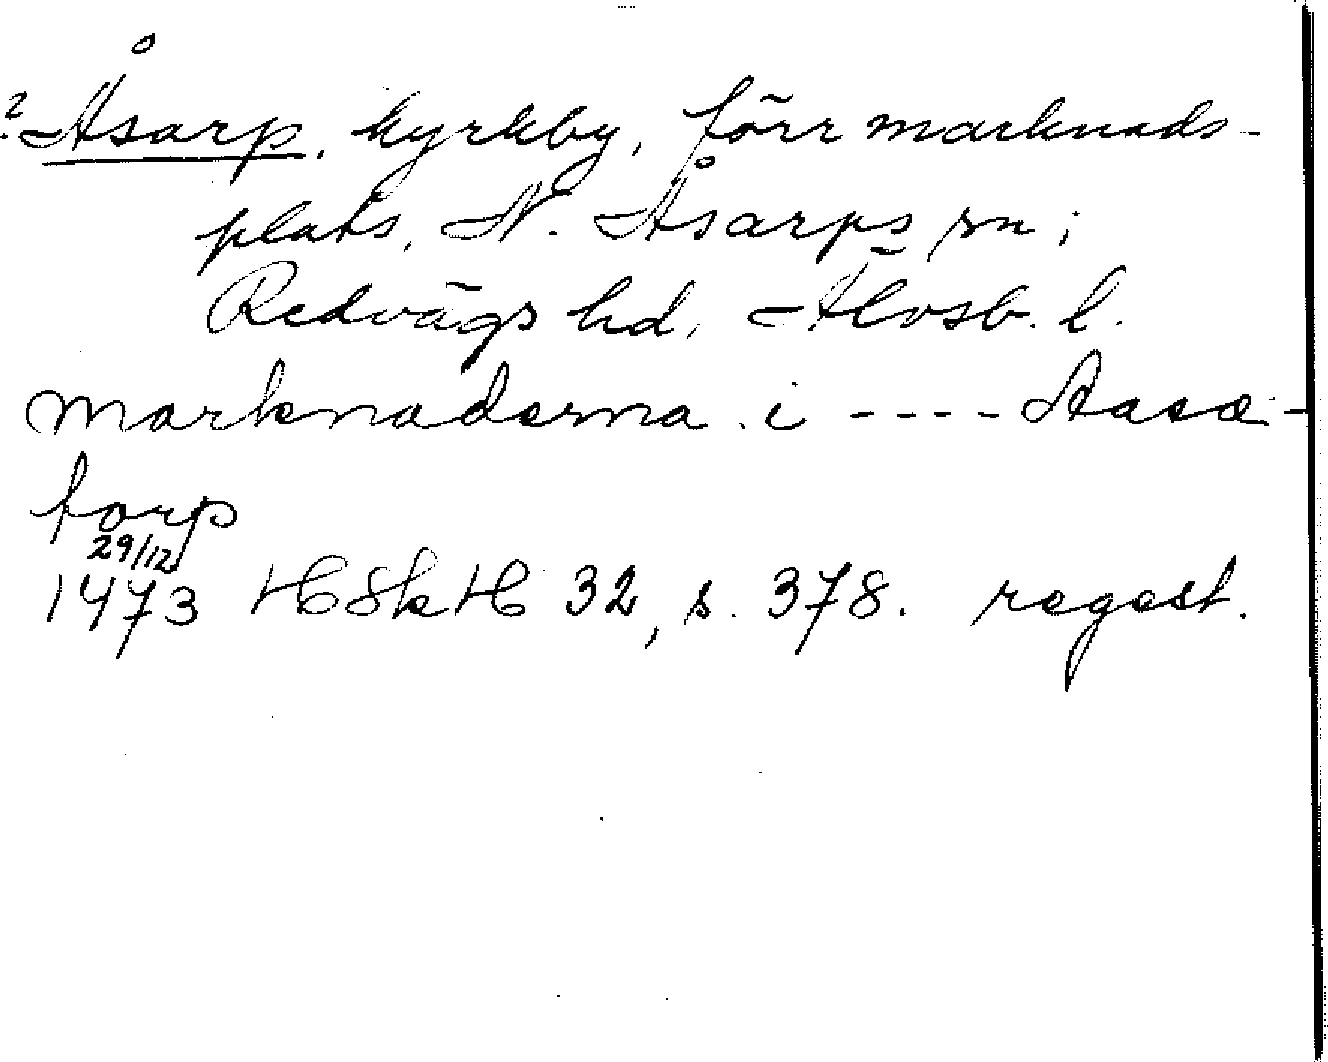 ? Åsarp, kyrkby, förr marknads-
plats, N. Åsarps sn;
Redvägs hd, Älvsb. l.
marknaderna i ---- Aasa-
torp
29/12
1473 HSkH 32, s. 378. regest.